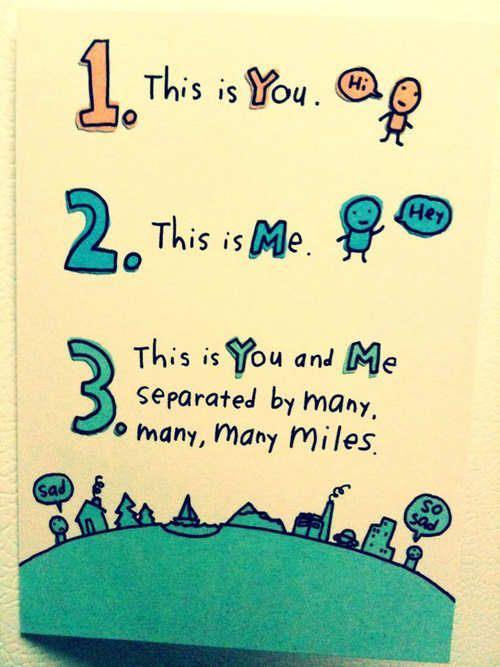 1. This is You. Hi
2. This is Me. Hey
3. This is You and Me
separated by many,
many, many miles.
sad
so
sad